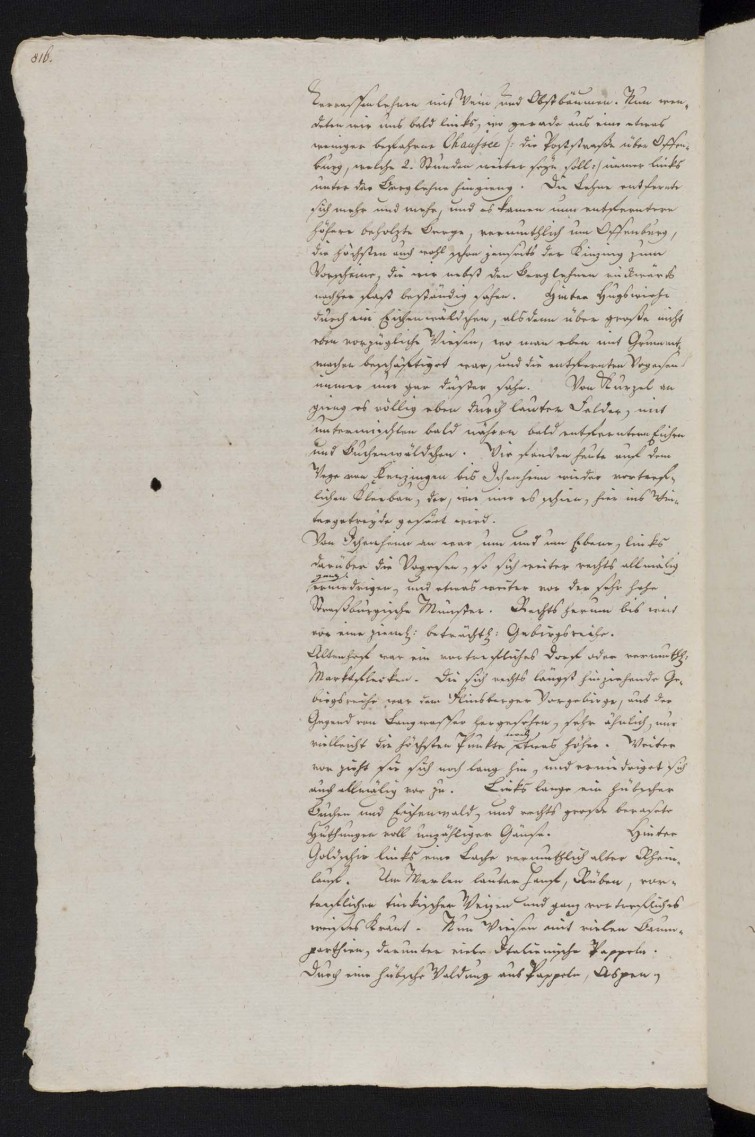 816.
Terrassenlehnen mit Wein und Obstbäumen. Nun wen-
deten wir uns bald links, wo gerade aus eine etwas
weniger befahrne Chaussee /: die Poststraße über Offen-
burg, welche 2. Stunden weiter seyn soll :/ immer links
unter der Berglehne hinging. Die Lehne entfernte
sich mehr und mehr, und es kamen nun entferntere
höhere beholzte Berge, vermuthlich um Offenburg,
die höchsten auch wohl schon jenseits der Kinzing zum
Vorscheine, die wir nebst den Berglehnen rückwärts
nachher fast beständig sahen. Hinter Hugsweyer
durch ein Eichenwäldchen, alsdenn über große nicht
eben vorzügliche Wiesen, wo man eben mit Grummt-
machen beschäftiget war, und die entfernten Vogesen
immer nur gar düster sahe. Von Kürzel an
gieng es völlig eben durch lauter Felder, mit
untermischten bald nähern bald entferntern Eichen
und Buchenwäldchen. Wir fanden heute auf dem
Wege von Kenzingen bis Ichenheim wieder vortref-
lichen Kleebau, der, wie mir es schien, hier ins Win-
tergetreyde gesäet wird.
Von Ichenheim an war um und um Ebene, links
darüber die Vogesen, so sich weiter rechts allmälig
ganz
erniedrigen, und etwas weiter vor der sehr hohe
Straßburgische Münster. Rechts herum bis weit
vor eine ziemlich: beträchtl: Gebirgsreihe.
Altenheim war ein vortrefliches Dorf oder vermuthl:
Marktflecken. Die sich rechts längst hinziehende Ge-
birgsreihe war dem Flinsberger Vorgebirge, aus der
Gegend von Langwasser hergesehen, sehr ähnlich, nur
vielleicht die höchsten Punkte noch etwas höher. Weiter
vor zieht sie sich noch lang hin, und erniedriget sich
auch allmälig vor zu. Links lange ein hübscher
Buchen und Eichenwald, und rechts große beraste
Huthungen voll unzähliger Gänse. Hinter
Goldschir links eine Lache vermuthlich alter Rhein-
lauf. Um Merlen lauter Hanf, Rüben, vor-
treflicher türkischer Weizen und ganz vortrefliches
weißes Kraut. Nun Wiesen mit vielen Baum-
parthien, darunter viele Italienische Pappeln.
Durch eine hübsche Waldung aus Pappeln, Aspen,